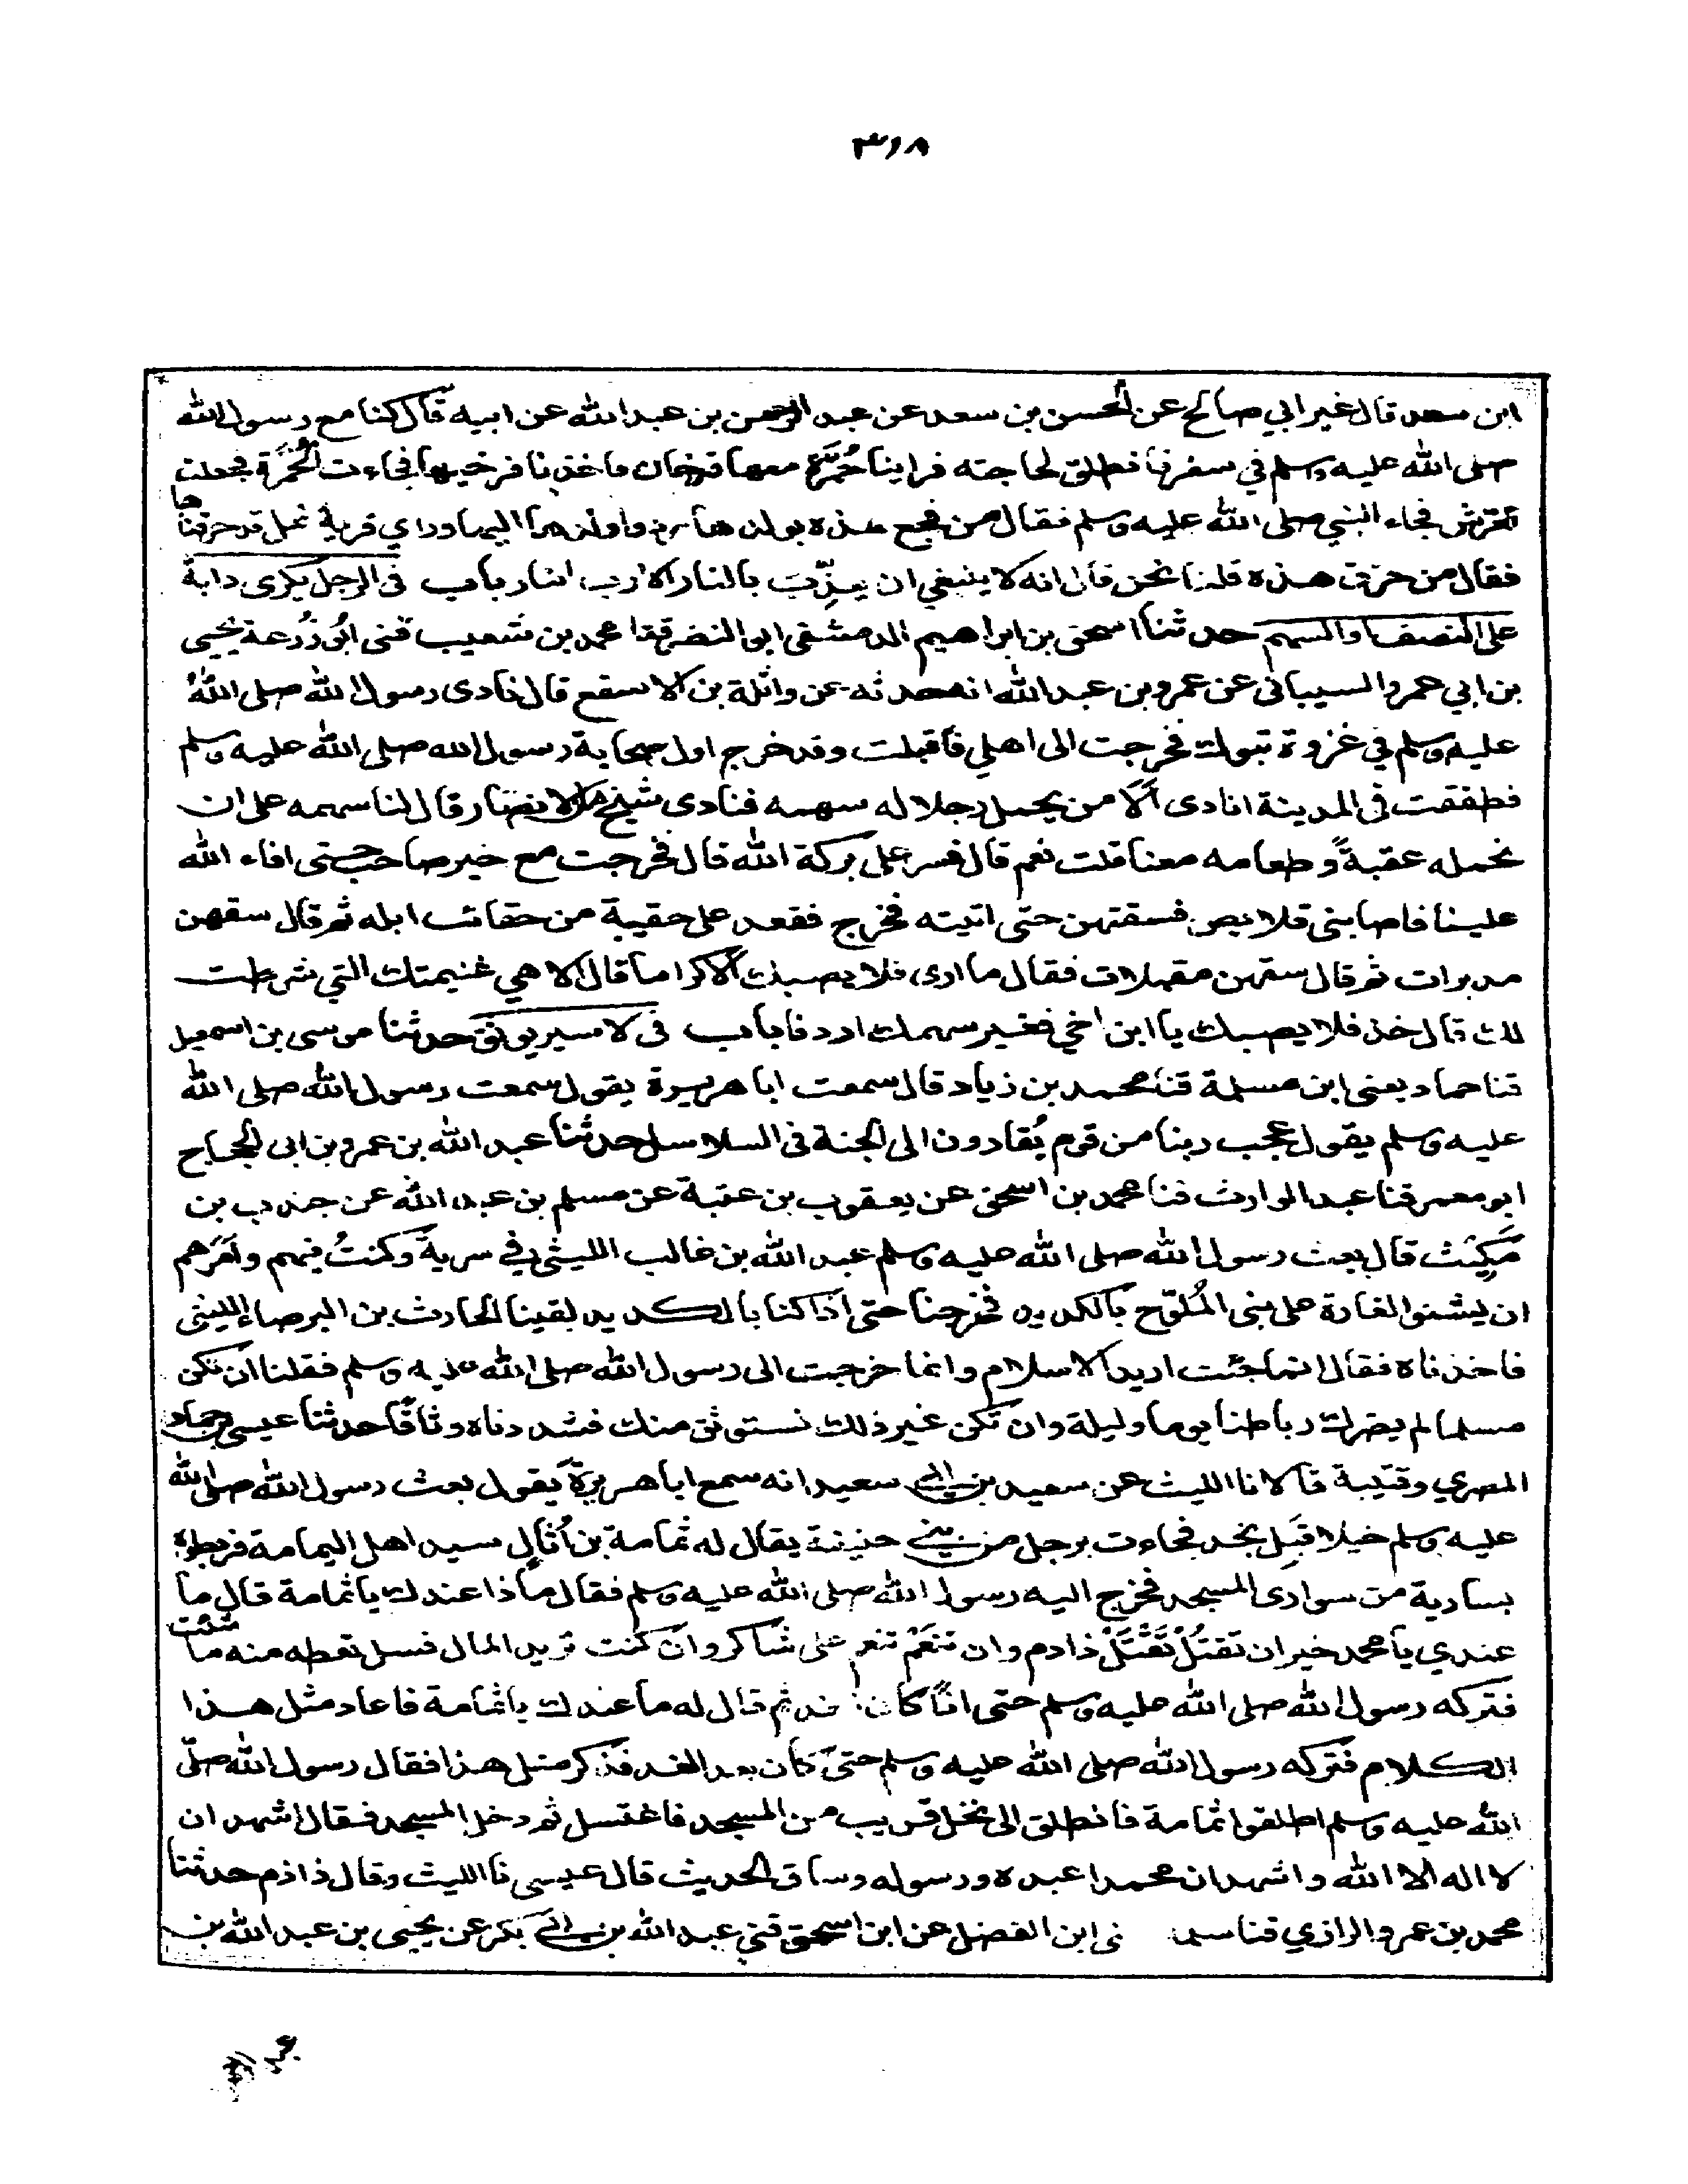 ٣١٨
ابن سعد قال غير ابي صالح عن الحسن بن سعد عن عبد الرحمن بن عبد الله عن ابيه قال كنا مع رسول الله
صلى الله عليه وسلم في سفر فانطلق لحاجته فراينا حُمَّرة معها فرخان فاخذنا فرخيها فجاءت الحُمَّرة فجعلت
تفرش فجاء النبي صلى الله عليه وسلم فقال من فجع هذه بولدها ردوا ولدها اليها وراي قرية نمل قد حرقناها
فقال من حرق هذه قلنا نحن قال انه لا ينبغي ان يعذِّب بالنار الا رب النار باب فى الرجل يكرى دابة
على النصف او السهم حدثنا اسحق بن ابراهيم الدمشقى ابو النضر قثنا محمد بن شعيب قثنى ابُو زُرعة يحيى
بن ابي عمرو السيبانى عن عمرو بن عبد الله انه حدثه عن واثلة بن الاسقع قال نادى رسول الله صلى الله
عليه وسلم في غزوة تبوك فخرجت الى اهلي فاقبلت وقد خرج اول صحابة رسول الله صلى الله عليه وسلم
فطفقت فى المدينة انادى ألا من يحمل رجلا له سهمه فنادى شيخ من الانصار قال لنا سهمه على ان
نحمله عقبةً وطعامه معنا قلت نعم قال فسر على بركة الله قال فخرجت مع خير صاحب حتى افاء الله
علينا فاصابنى قلائص فسقتهن حتى اتيته فخرج فقعد على حقيبة من حقائب ابله ثم قال سقهن
مدبرات ثم قال سقهن مقبلات فقال ما ارى قلائصك الا كراما قال الا هي غنيمتك التي شرطت
لك قال خذ قلائصك يا ابن اخي فغير سهمك اردنا باب فى الاسير يوثق حدثنا موسى بن اسمعيل
قثنا حماد يعنى ابن مسلمة قثنا محمد بن زياد قال سمعت ابا هريرة يقول سمعت رسول الله صلى الله
عليه وسلم يقول عجب ربنا من قوم يُقادون الى الجنة فى السلاسل حدثنا عبد الله بن عمرو بن ابى الحجاج
ابو معمر قثنا عبد الوارث قثنا محمد بن اسحق عن يعقوب بن عتبة عن مسلم بن عبد الله عن جندب بن
مَكِيْث قال بعث رسول الله صلى الله عليه وسلم عبد الله بن غالب الليثي في سرية وكنتُ فيهم وأمَرَهم
ان يشنوا الغارة على بنى المُلوّح بالكديد فخرجنا حتى اذا كنا بالكديد لقينا الحارث بن البرصاء الليثى
فاخذناه فقال انما جئت اريد الاسلام وانما خرجت الى رسول الله صلى الله عليه وسلم فقلنا ان تكن
مسلما لم يضرك رباطنا يوما وليلة وان تكن غير ذلك نستوثق منك فشددناه وثاقًا حدثنا عيسى بن حماد
المصري وقتيبة قالا نا الليث عن سعيد بن ابي سعيد انه سمع ابا هريرة يقول بعث رسول الله صلى الله
عليه وسلم خيلا قِبَل نجد فجاءت برجل من بني حنيفة يقال له ثمامة بن أُثالٍ سيد اهل اليمامة فربطوه
بسارية من سوارى المسجد فخرج اليه رسول الله صلى الله عليه وسلم فقال ماذا عندك يا ثمامة قال ما
عندي يا محمد خير ان تقتُلْ تَقْتُلْ ذا دم وان تنعَمْ تنعم على شاكر وان كنت تريد المال فسل تعطه منه ما شئت
فتركه رسول الله صلى الله عليه وسلم حتى اذا كان الغد ثم قال له ما عندك يا ثمامة فاعاد مثل هذا
الكلام فتركه رسول الله صلى الله عليه وسلم حتى كان بعد الغد فذكر مثل هذا فقال رسول الله صلى
الله عليه وسلم اطلقوا ثمامة فانطلق الى نخل قريب من المسجد فاغتسل ثم دخل المسجد فقال اشهد ان
لا اله الا الله واشهد ان محمدا عبده ورسوله وساق الحديث قال عيسى نا الليث وقال ذا ذم حدثنا
محمد بن عمرو الرازي قثنا سلمة نى ابن الفضل عن ابن اسحق قثني عبد الله بن ابي بكر عن يحيى بن عبد الله بن